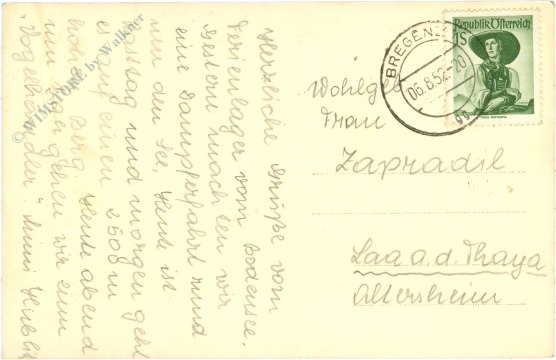 Herzliche Grüße vom
Ferienlager vom Bodensee.
Gestern machten wir
eine Dampferfahrt rund
um den See. Heute ist
Rasttag und morgen geht
es auf einen 2500 m
hohen Berg. Heute abend
um gehen wir zum
"Vogelhändler".
BREGENZ
06.8.52.-20
9g
Republik Österreich
1S
Wohlgeb
Frau
Zapradil
Laa a. d. Thaya
Altersheim
© WIMSTORE by Walkner